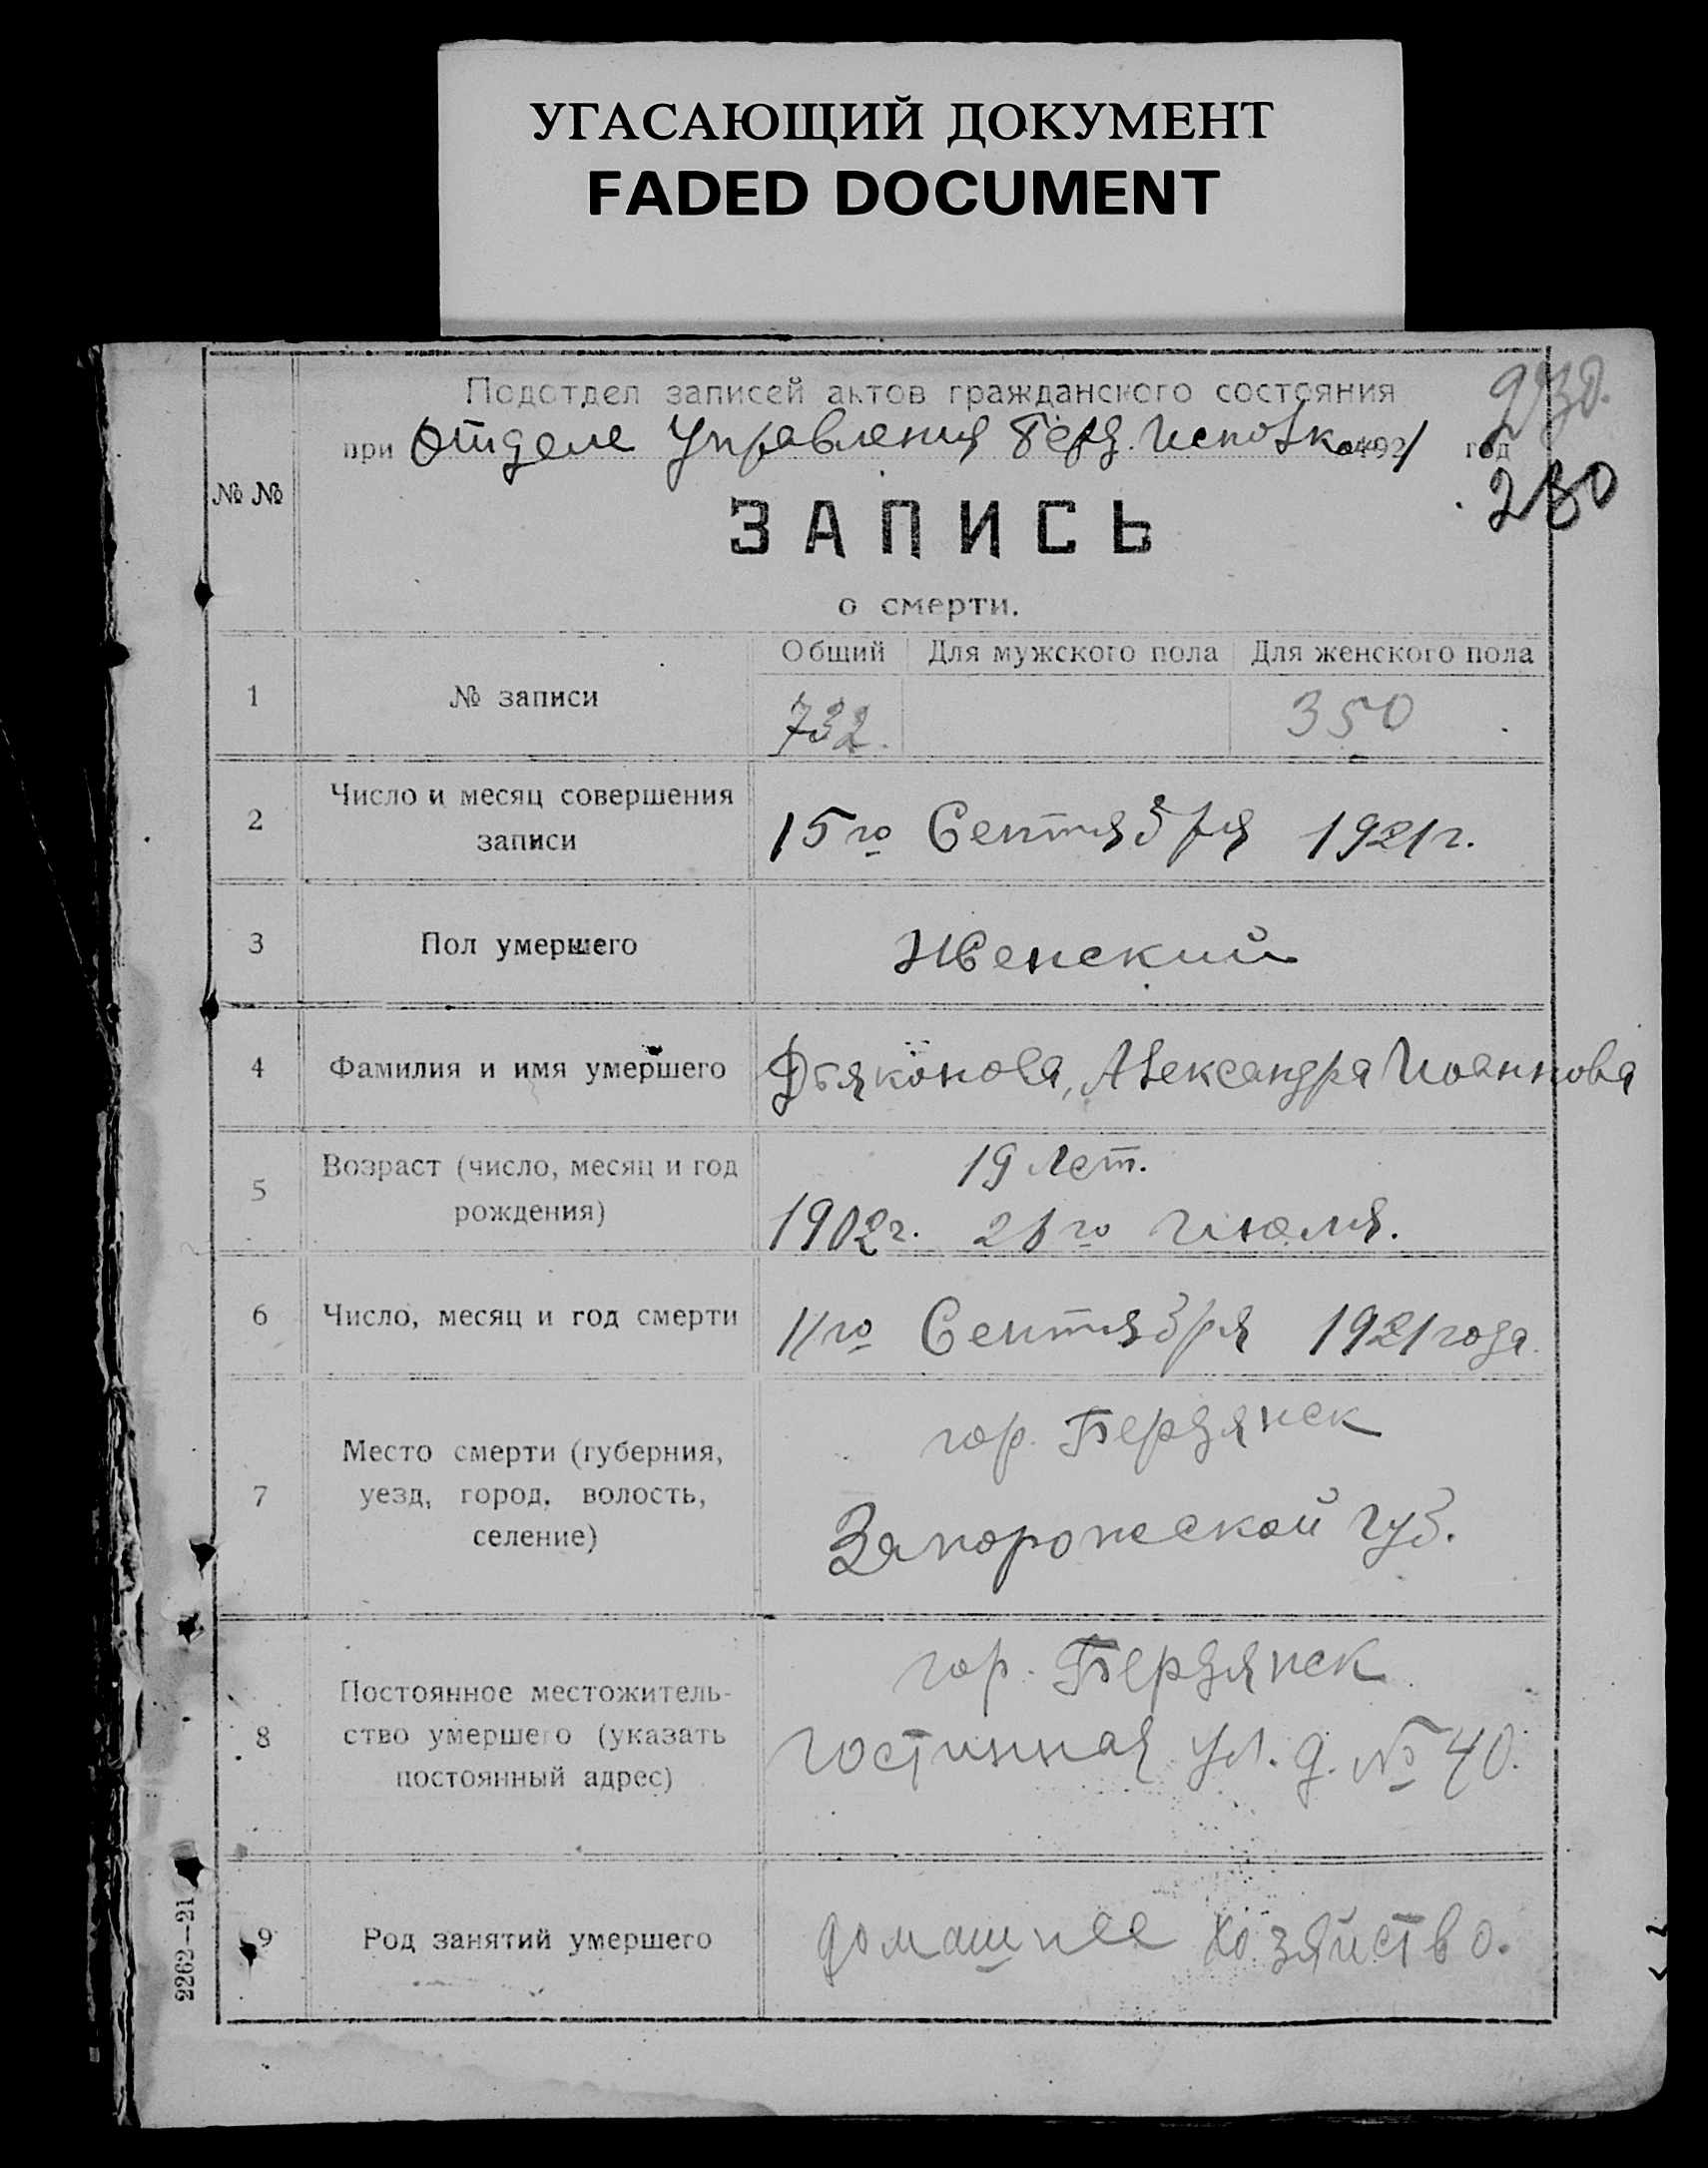 УГАСАЮЩИЙ ДОКУМЕНТ
FADED DOCUMENT
Подотдел записей актов гражданского состояния
230.
при Отделе Управления Берд. Исполкома 1921 год
230
№ №
ЗАПИСЬ
о смерти.
Общий Для мужского пола Для женского пола
1 № записи 732. 350
2 Число и месяц совершения
записи
15го Сентября 1921г.
3 Пол умершего Женский
4 Фамилия и имя умершего Дьяконова, Александра Иоаннова
5 Возраст (число, месяц и год
рождения)
19 лет.
1902г. го Июля.
6 Число, месяц и год смерти 11го Сентября 1921 года.
7 Место смерти (губерния,
уезд, город, волость,
селение)
гор. Бердянск
Запорожской губ.
8 Постоянное местожитель-
ство умершего (указать
постоянный адрес)
гор. Бердянск
Гостинная ул. д. № 40.
9 Род занятий умершего домашнее хозяйство.
2262—21